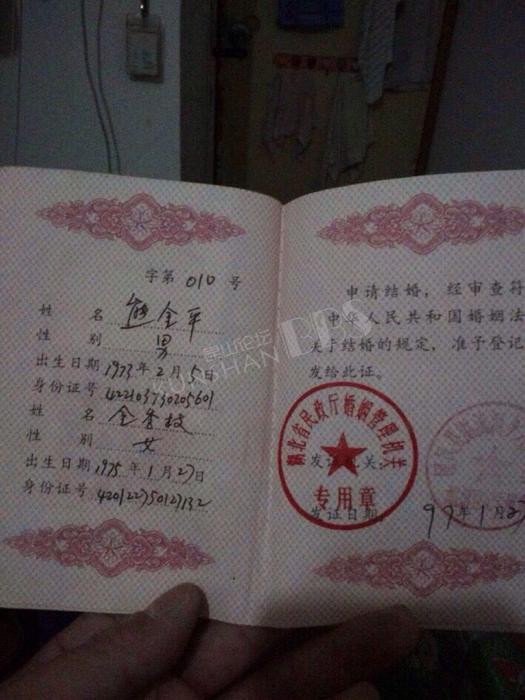 字第 010 号
姓 名 熊金平
性 别 男
出生日期 1973年2月5日
身份证号 422103730205601
姓 名 金香枝
性 别 女
出生日期 1975年1月27日
身份证号 420122750127132
申请结婚，经审查符
中华人民共和国婚姻法
关于结婚的规定，准予登记
发给此证。
湖北省民政厅婚姻管理机关
专用章
发证机关
发证日期 99年1月27
昆山论坛
KUNSHAN BBS